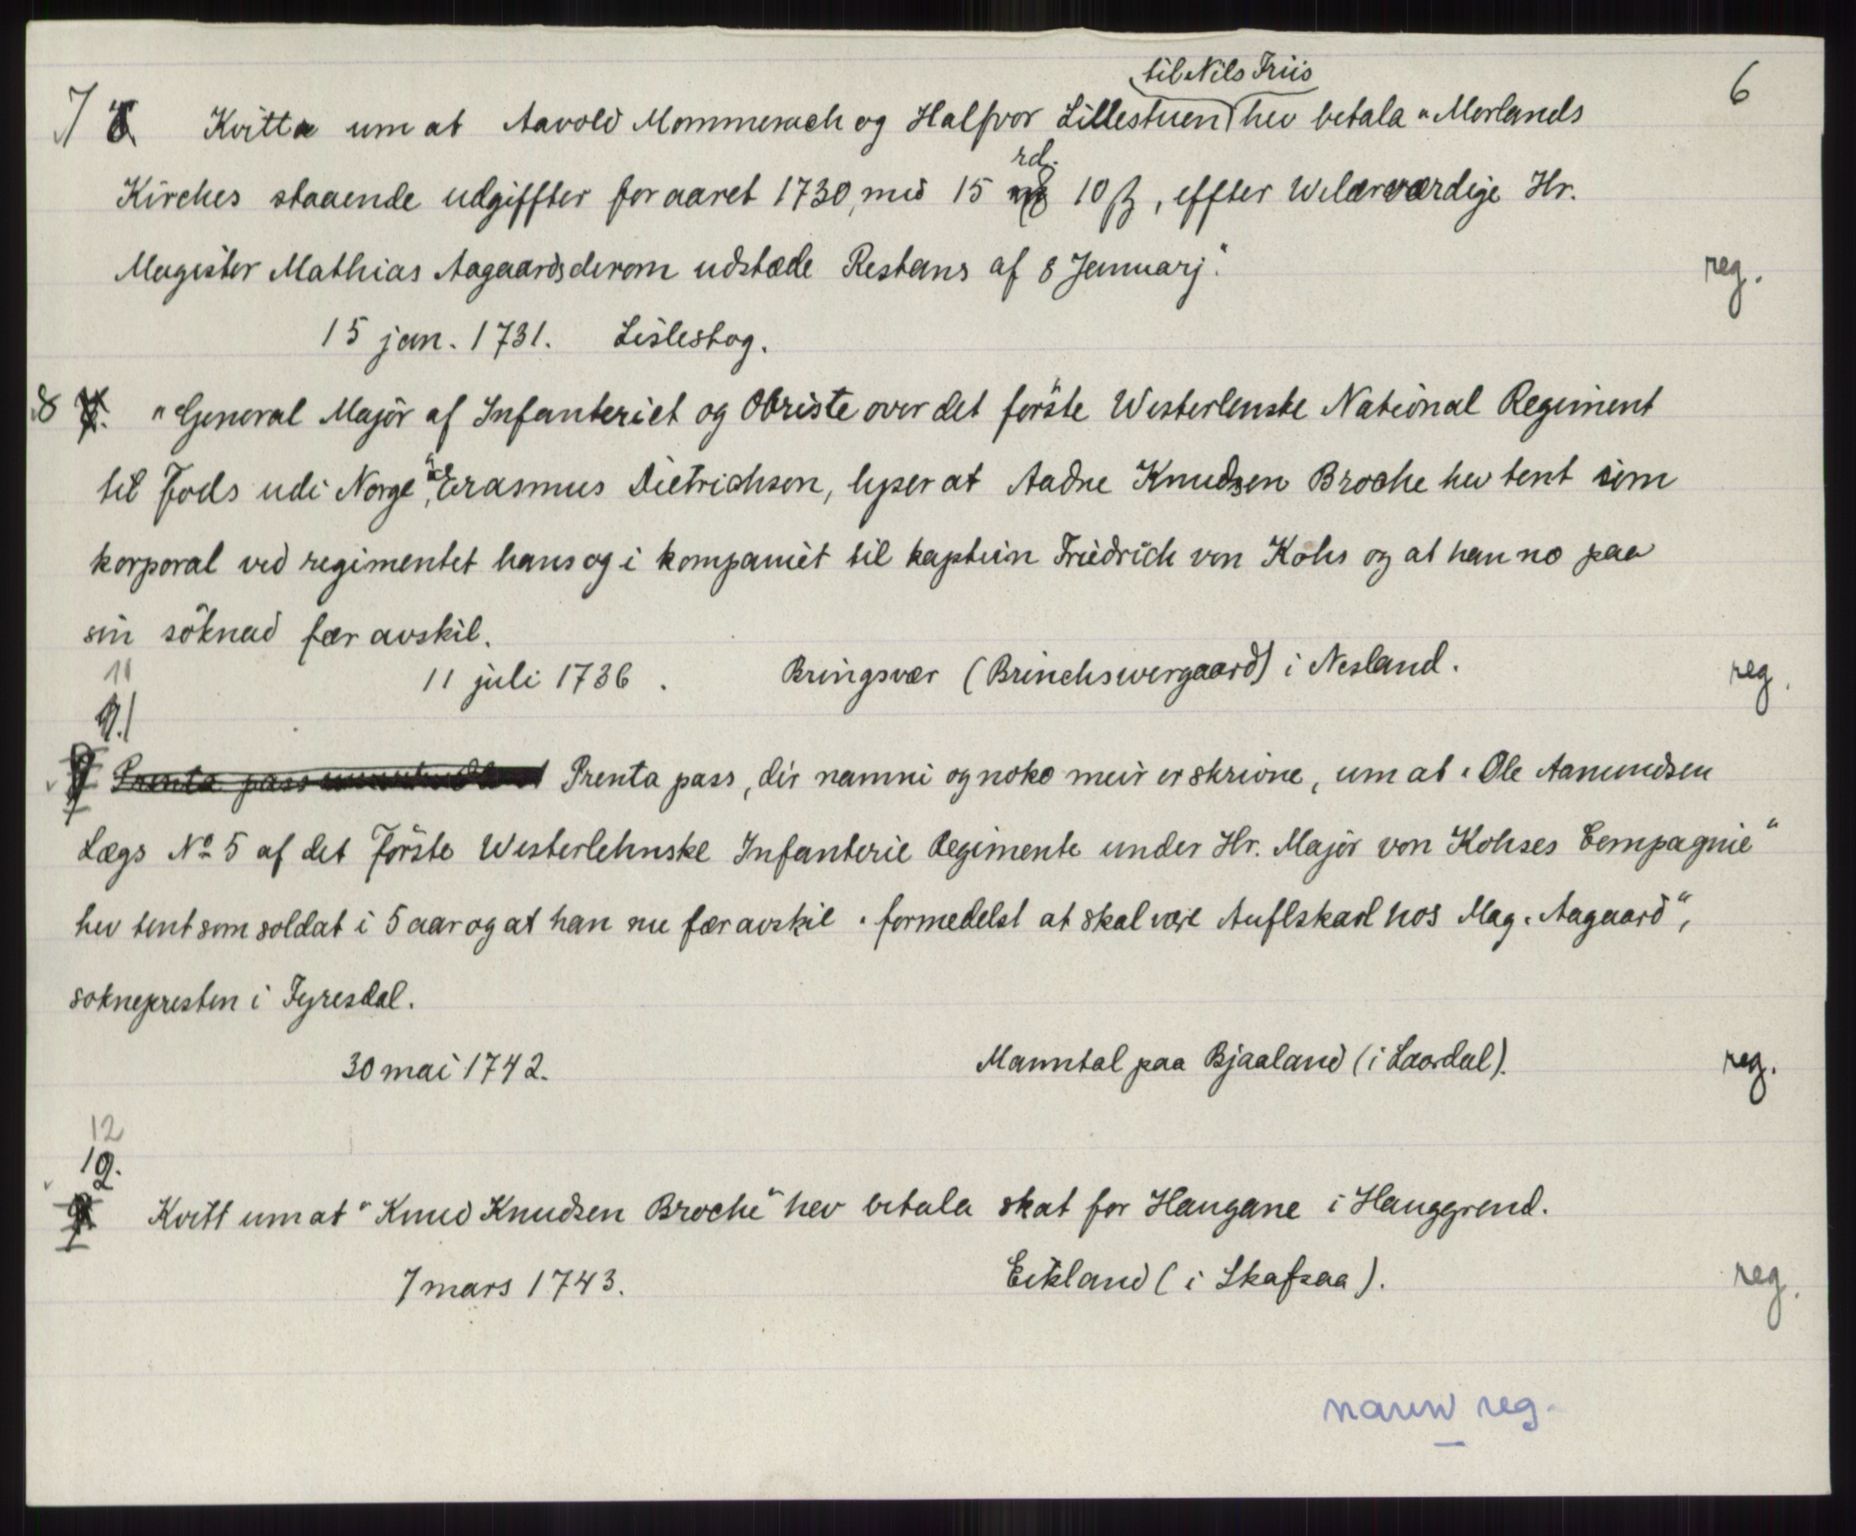 til Nils Friis
6
7 Kvitt um at Aavold Mommerach og Halfvor Lillestuen hev betala "Morlands
rd.
Kirches staaende udgiffter for aaret 1730, med 15 10 ß, effter Welærværdige Hr.
Magister Mathias Aagaards derom udstæde Restans af 8 Januarj."
reg.
15 jan. 1731. Lislestog.
8 "General Major af Infanteriet og Obriste over det förste Westerlenske National Regiment
til Fods udi Norge", Erasmus Dietrichson, lyser at Aadne Knudsen Broche hev tent som
korporal ved regimentet hans og i kompaniet til kaptein Friedrich von Kohs og at han no paa
sin söknad fær avskil.
11 juli 1736. Bringsvær (Brinchswergaard) i Nesland.
reg.
11
Prenta pass, der namni og noko meir er skrivne, um at "Ole Aamundsen
Lægs No 5 af det Förste Westerlehnske Infanterie Regimente under Hr. Major von Kohses Compagnie"
hev tent som soldat i 5 aar og at han nu fær avskil "formedelst at skal være Auflskarl hos Mag. Aagaard",
soknepresten i Fyresdal.
30 mai 1742. Manntal paa Bjaaland (i Laardal).
reg.
12
12.
Kvitt um at "Knud Knudsen Broche" hev betala skat for Haugane i Hauggrend.
7 mars 1743. Eikland (i Skafsaa).
reg.
reg.